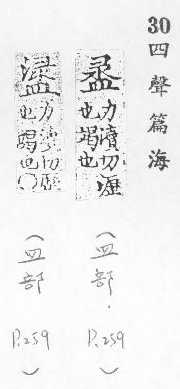 30
四聲篇海
盝
力瀆切瀝
也竭也
(皿部.
P.259)
力瀆切瀝
也竭也〇
(皿部
P.259)